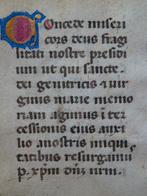 Concede miseri
cors deus fragi
litati nostre presidi
um ut qui sancte
dei genitricis & vir
ginis marie memo
riam agimus i ter
cessionis eius auxi
lio anostris iniqui
tatibus resurgamus
p. xpm dnm nrm.